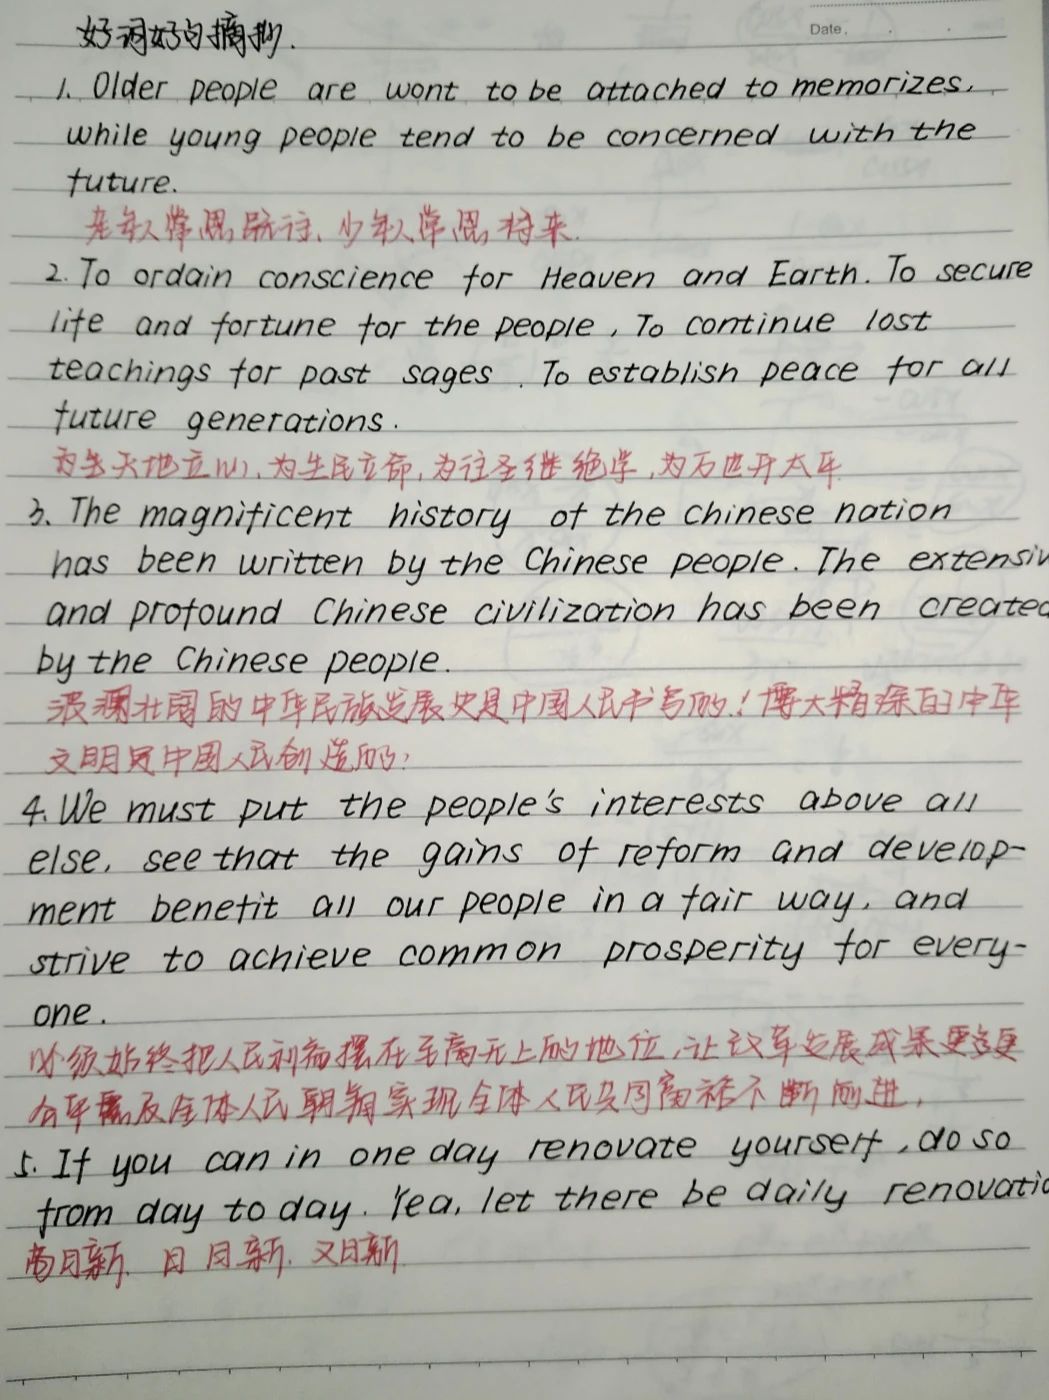 好词好句摘抄.
Date.
1. Older people are wont to be attached to memorizes,
while young people tend to be concerned with the
future.
老年人常思既往、少年人常思将来.
2. To ordain conscience for Heaven and Earth. To secure
life and fortune for the people, To continue lost
teachings for past sages. To establish peace for all
future generations.
为天地立心, 为生民立命, 为往圣继绝学, 为万世开太平
3. The magnificent history of the chinese nation
has been written by the Chinese people. The extensiv
and profound Chinese civilization has been created
by the Chinese people.
波澜壮阔的中华民族发展史是中国人民书写的! 博大精深的中华
文明是中国人民创造的!
4. We must put the people's interests above all
else, see that the gains of reform and develop-
ment benefit all our people in a fair way, and
strive to achieve common prosperity for every-
one.
必须始终把人民利益摆在至高无上的地位, 让改革发展成果更多更
公平惠及全体人民朝着实现全体人民共同富裕不断前进,
5. If you can in one day renovate yourself, do so
from day to day. Yea, let there be daily renovatio
苟日新. 日日新. 又日新